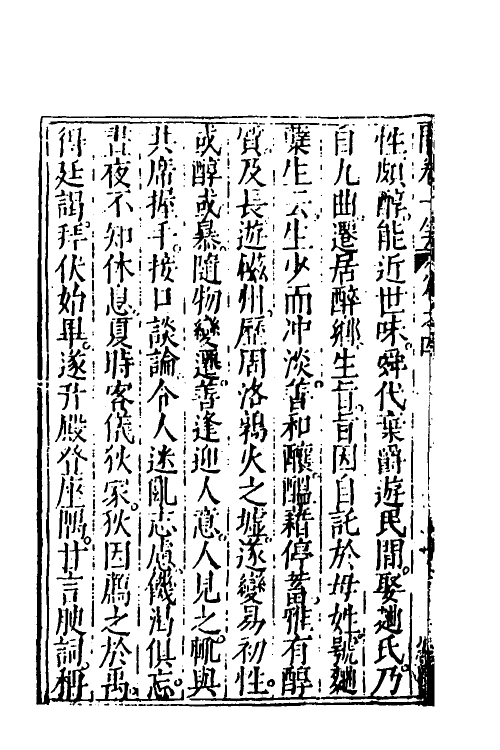 性頗醇能近世味舜代棄爵遊民間娶麯氏乃
自九曲遷居醉鄉生旨旨因自託於母姓號麯
糵生云生少而冲淡善和釀醞藉停蓄雅有醇
質及長遊磁州歷周洛鶉火之墟遂變易初性
或醇或暴隨物變遷善逢迎人意人見之輒與
共席握手接口談論令人迷亂志慮饑渴俱忘
晝夜不知休息夏時客儀狄家狄因薦之於禹
得延謁拜伏始畢遂升殿登座隅甘言腴詞栖